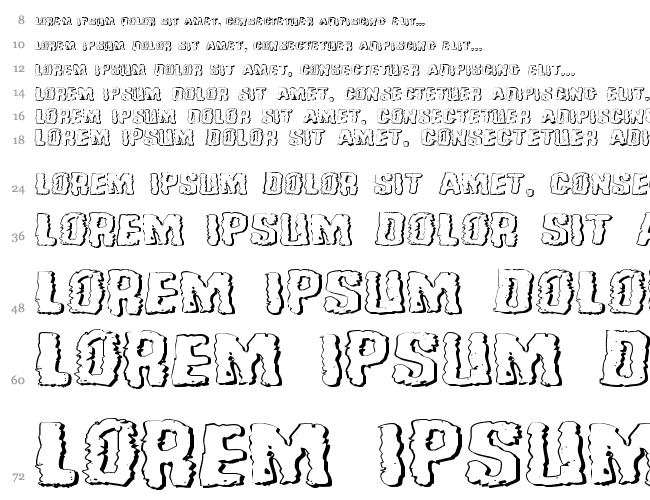 8 LOREM IPSUM DOLOR SIT AMET, CONSECTETUER ADIPISCING ELIT...
10 LOREM IPSUM DOLOR SIT AMET, CONSECTETUER ADIPISCING ELIT...
12 LOREM IPSUM DOLOR SIT AMET, CONSECTETUER ADIPISCING ELIT...
14 LOREM IPSUM DOLOR SIT AMET, CONSECTETUER ADIPISCING ELIT.
16 LOREM IPSUM DOLOR SIT AMET, CONSECTETUER ADIPISCING
18 LOREM IPSUM DOLOR SIT AMET, CONSECTETUER ADI
24 LOREM IPSUM DOLOR SIT AMET, CONSE
36 LOREM IPSUM DOLOR SIT A
48 LOREM IPSUM DOLO
60 LOREM IPSUM D
72 LOREM IPSUM